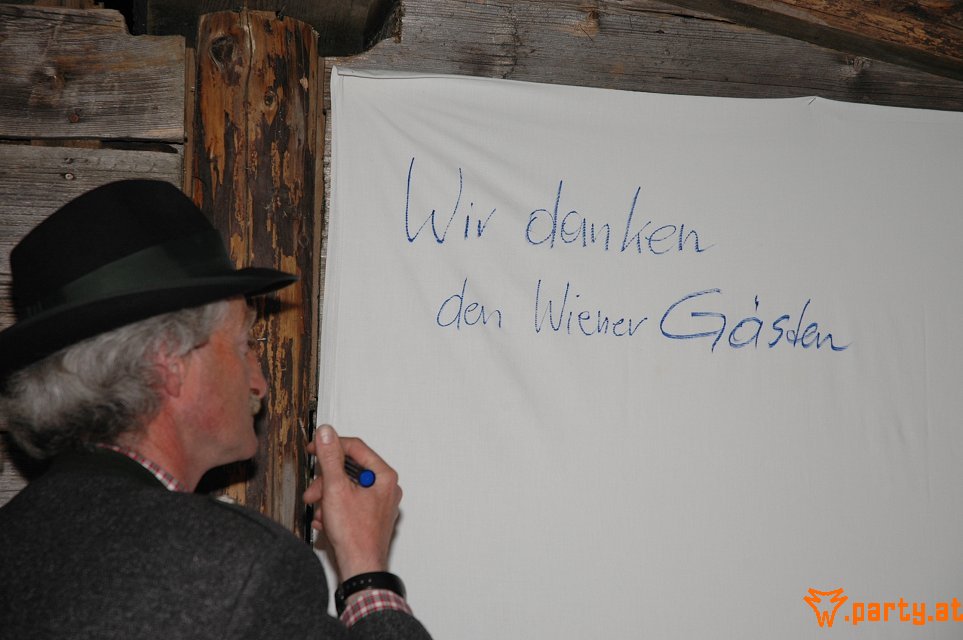 Wir danken
den Wiener Gästen
.party.at